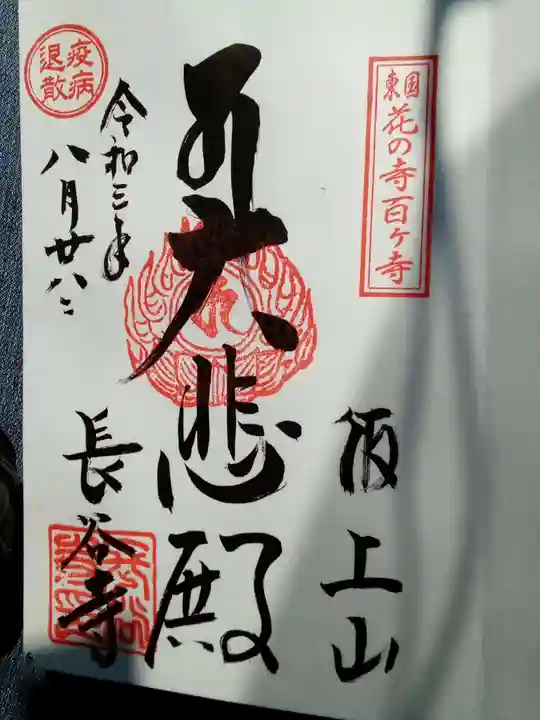 東国花の寺百ヶ寺
飯上山
大悲殿
疫病退散
令和三年
八月廿八日
長谷寺